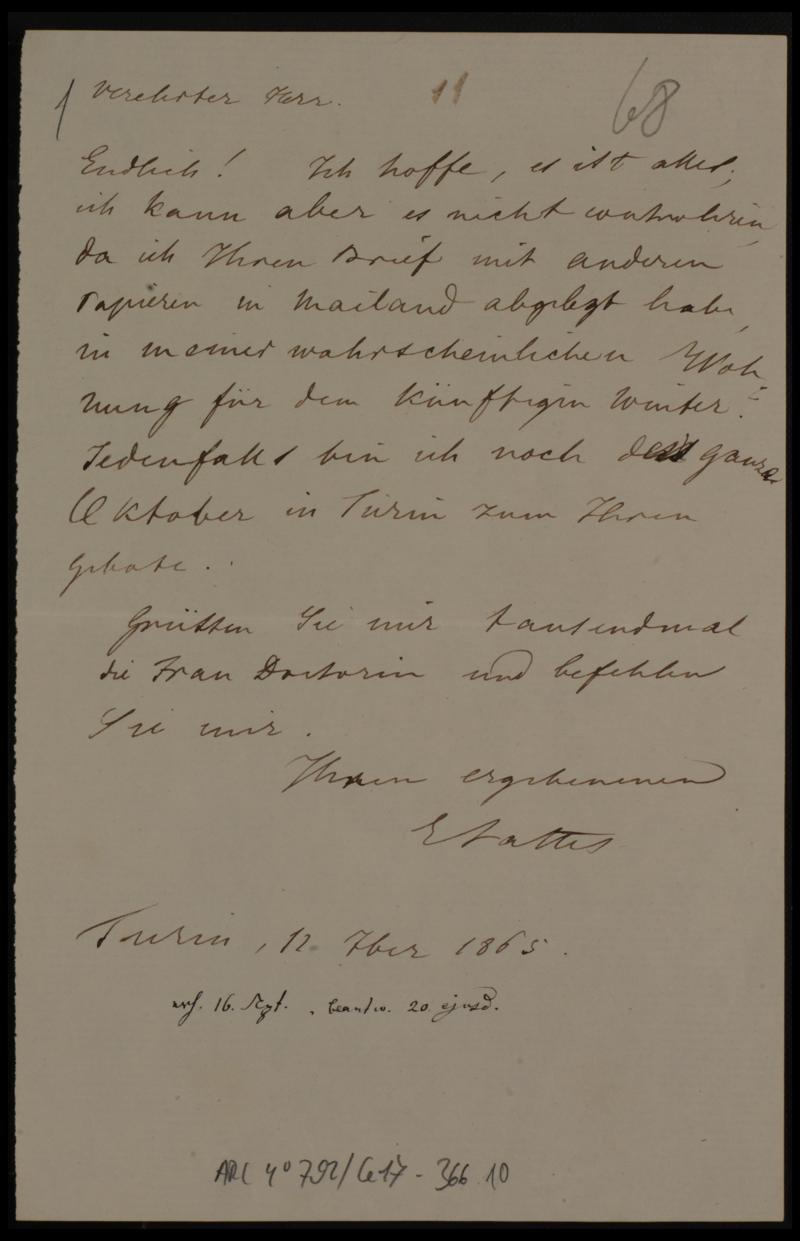 1 Verehrter Herr. 11 68
Endlich! Ich hoffe, es ist alles;
ich kann aber es nicht controliren,
da ich Ihren Brief mit anderen
Papieren in Mailand abgelegt habe,
in meiner wahrscheinlichen Woh-
nung für dem künftigen Winter.
Jedenfalls bin ich noch den ganzen
Oktober in Turin zum Ihren
Gebote.
Grüssen Sie mir tausendmal
die Frau Doctorin und befehlen
Sie mir.
Ihren ergebenenen
ELattes
Turin, 12 7ber 1865.
16. Sept., beantw. 20 ejusd.
ARC 4° 792/G17-366.10